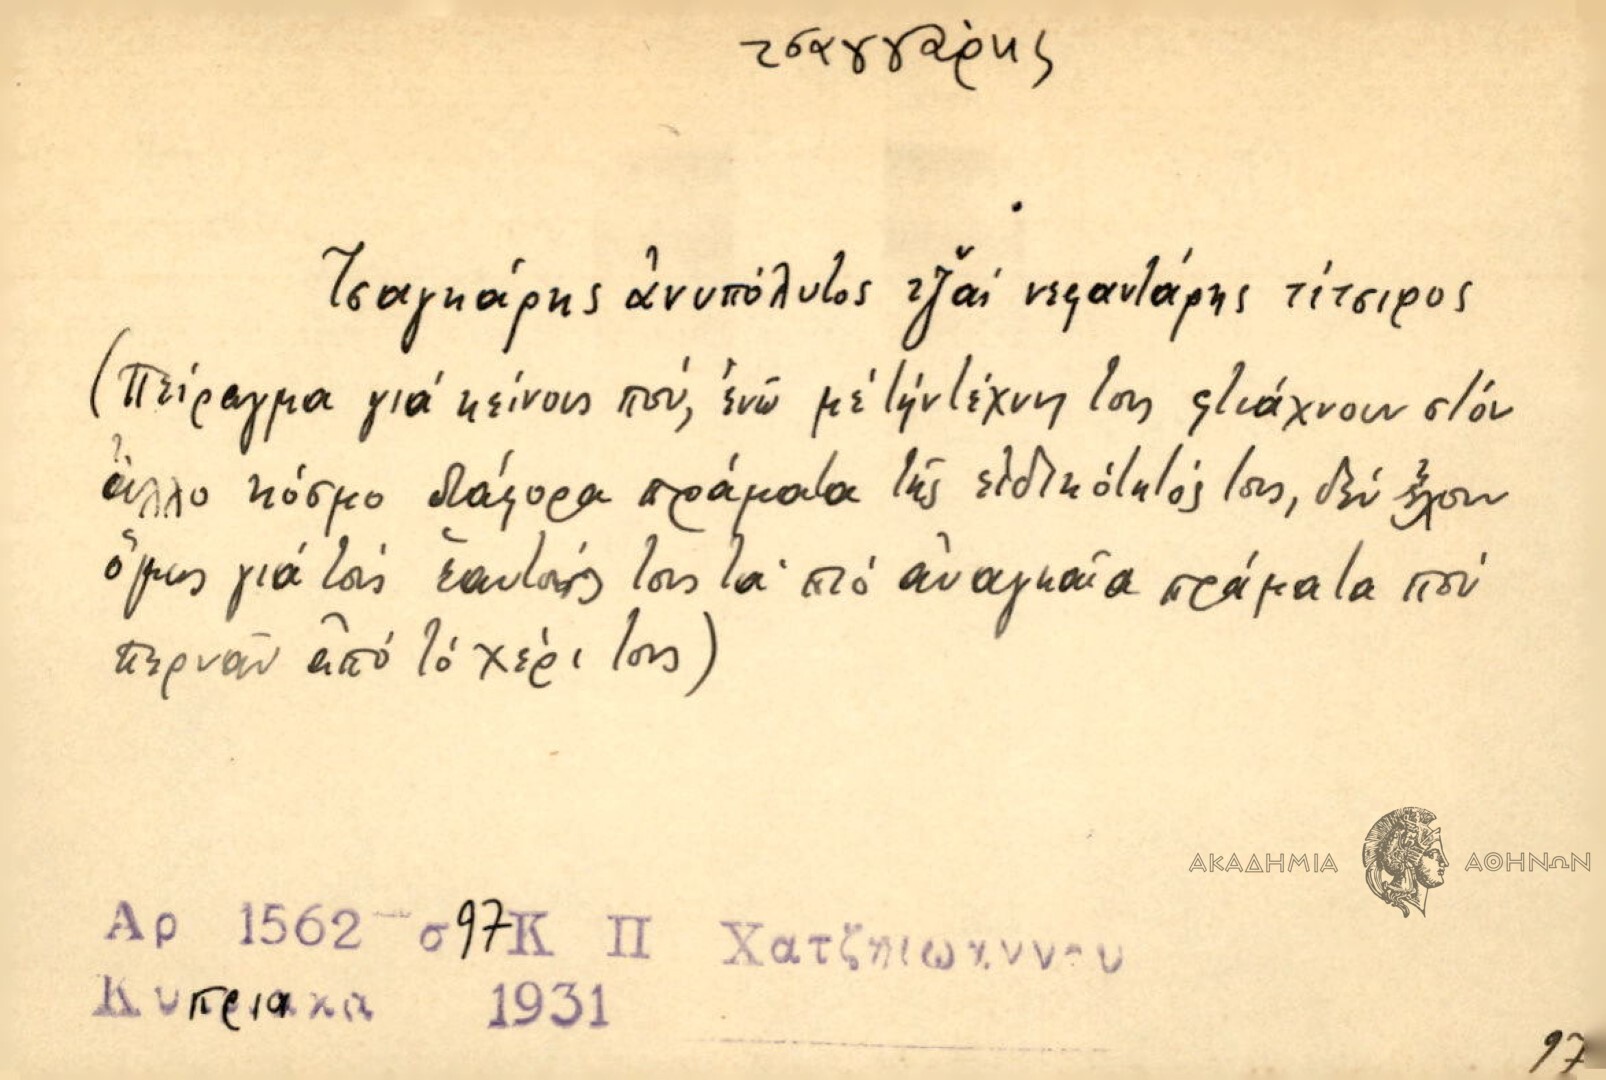 τσαγγάρης
Τσαγκάρης ἀνυπόλυτος τζ̌αί νεφαντάρης τίτσιρος
(Πείραγμα γιά κείνους πού, ἐνῶ μέ τήν τέχνη τους φτιάχνουν στόν
ἄλλο κόσμο διάφορα πράματα τῆς εἰδικότητός τους, δέν ἔχουν
ὅμως γιά τούς ἑαυτούς τους τά πιό ἀναγκαῖα πράματα πού
περνᾶν ἀπό τό χέρι τους)
ΑΚΑΔΗΜΙΑ ΑΘΗΝΩΝ
Αρ 1562 σ97 Κ Π Χατζηιωαννου
Κυπριακα 1931
97